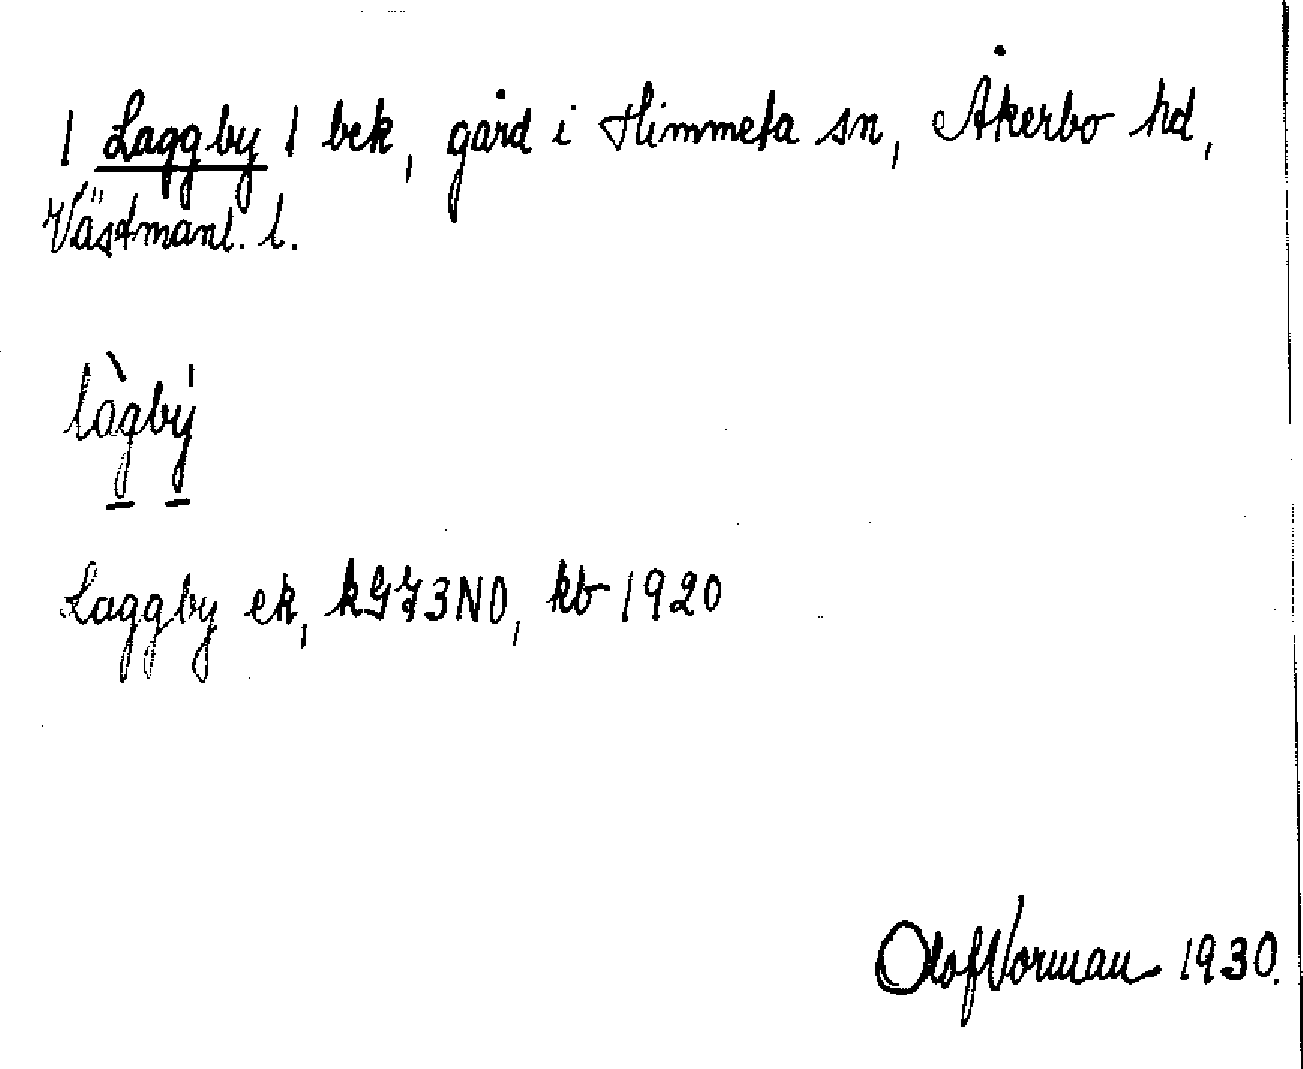 1 Laggby 1 bek, gård i Himmeta sn, Åkerbo hd,
Västmanl. l.
làgbý
Laggby ek, kGJ3NO, kb 1920
Olof Norman 1930.